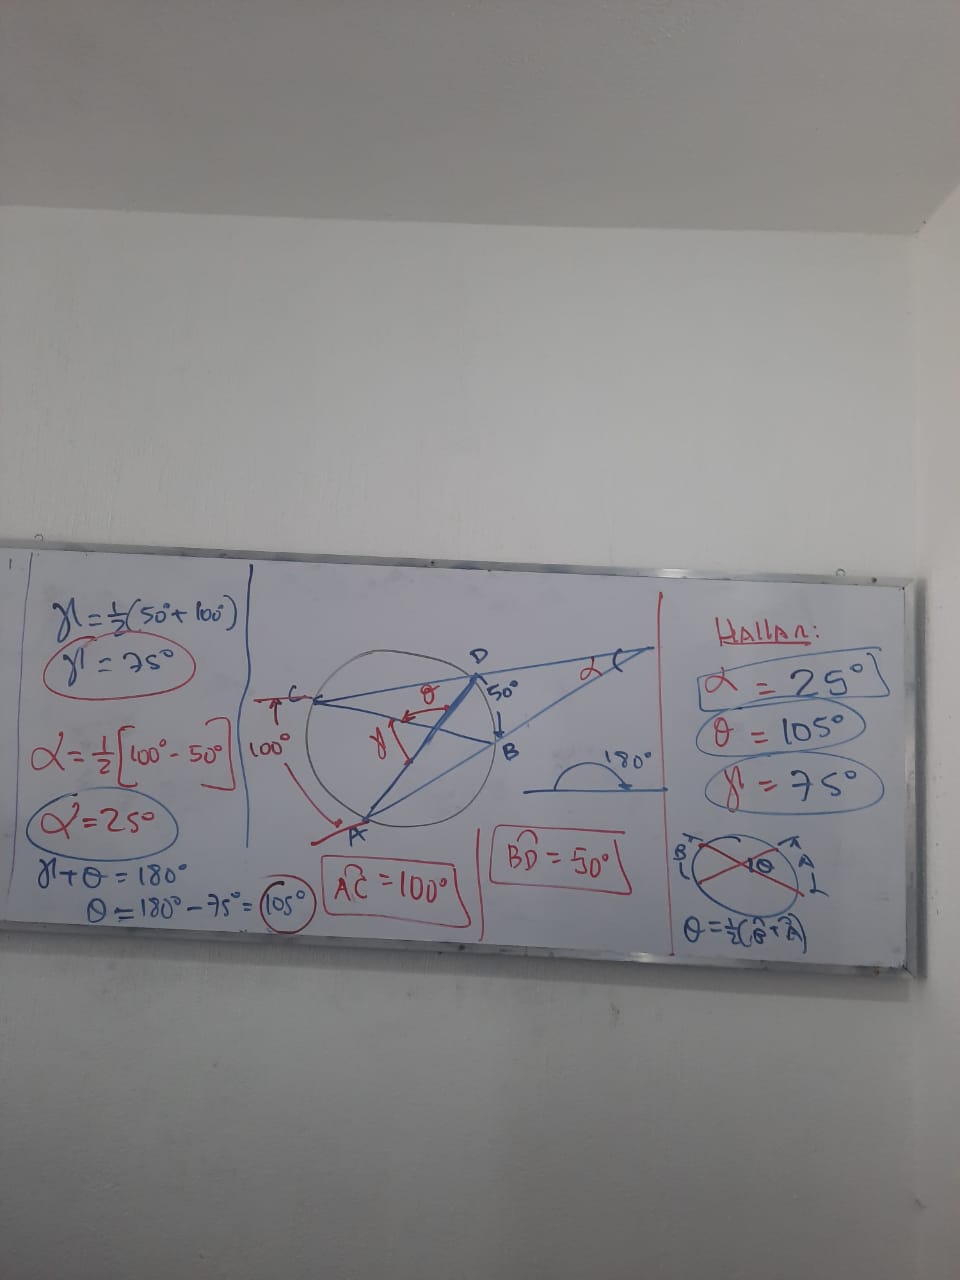 γ = 1/2 (50° + 100°)
γ = 75°
α = 1/2 [100° - 50°]
α = 25°
γ + θ = 180°
θ = 180° - 75° = 105°
C
D
θ
α
50°
γ
100°
B
A
180°
AC = 100°
BD = 50°
HALLAR:
α = 25°
θ = 105°
γ = 75°
B
θ
A
θ = 1/2 (B + A)